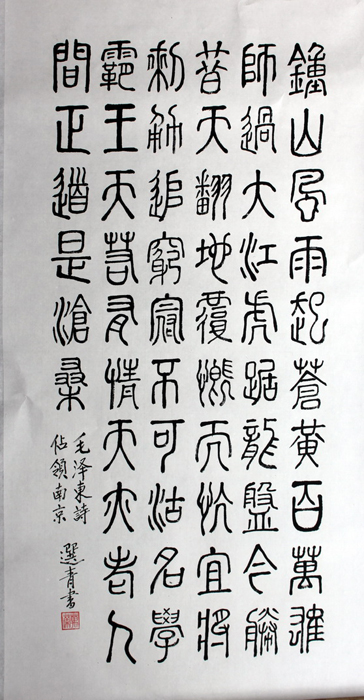 鐘山風雨起蒼黃百萬雄
師過大江虎踞龍盤今勝
昔天翻地覆慨而慷宜將
剩勇追窮寇不可沽名學
霸王天若有情天亦老人
間正道是滄桑
毛泽東詩
佔領南京
選青書